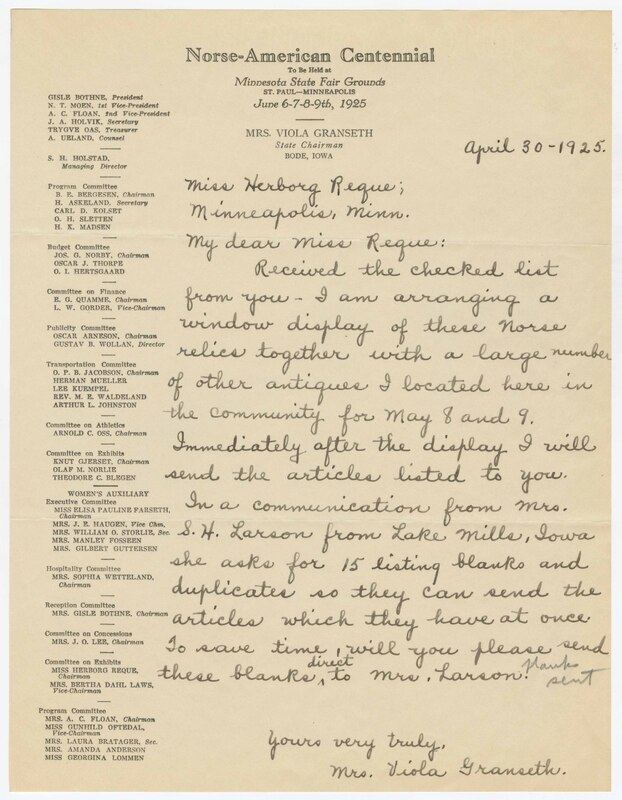 Norse-American Centennial
To Be Held at
Minnesota State Fair Grounds
ST. PAUL—MINNEAPOLIS
June 6-7-8-9th, 1925
MRS. VIOLA GRANSETH
State Chairman
BODE, IOWA
GISLE BOTHNE, President
N. T. MOEN, 1st Vice-President
A. C. FLOAN, 2nd Vice-President
J. A. HOLVIK, Secretary
TRYGVE OAS, Treasurer
A. UELAND, Counsel
S. H. HOLSTAD,
Managing Director
Program Committee
B. E. BERGESEN, Chairman
H. ASKELAND, Secretary
CARL D. KOLSET
O. H. SLETTEN
H. K. MADSEN
Budget Committee
JOS. G. NORBY, Chairman
OSCAR J. THORPE
O. I. HERTSGAARD
Committee on Finance
E. G. QUAMME, Chairman
L. W. GORDER, Vice-Chairman
Publicity Committee
OSCAR ARNESON, Chairman
GUSTAV B. WOLLAN, Director
Transportation Committee
O. P. B. JACOBSON, Chairman
HERMAN MUELLER
LEE KUEMPEL
REV. M. E. WALDELAND
ARTHUR L. JOHNSTON
Committee on Athletics
ARNOLD C. OSS, Chairman
Committee on Exhibits
KNUT GJERSET, Chairman
OLAF M. NORLIE
THEODORE C. BLEGEN
WOMEN'S AUXILIARY
Executive Committee
MISS ELISA PAULINE FARSETH,
Chairman
MRS. J. E. HAUGEN, Vice Chm.
MRS. WILLIAM O. STORLIE, Sec.
MRS. MANLEY FOSSEEN
MRS. GILBERT GUTTERSEN
Hospitality Committee
MRS. SOPHIA WETTELAND,
Chairman
Reception Committee
MRS. GISLE BOTHNE, Chairman
Committee on Concessions
MRS. J. O. LEE, Chairman
Committee on Exhibits
MISS HERBORG REQUE,
Chairman
MRS. BERTHA DAHL LAWS,
Vice-Chairman
Program Committee
MRS. A. C. FLOAN, Chairman
MISS GUNHILD OFTEDAL,
Vice-Chairman
MRS. LAURA BRATAGER, Sec.
MRS. AMANDA ANDERSON
MISS GEORGINA LOMMEN
April 30-1925.
Miss Herborg Reque;
Minneapolis, Minn.
My dear Miss Reque:
Received the checked list
from you - I am arranging a
window display of these Norse
relics together with a large number
of other antiques I located here in
the community for May 8 and 9.
Immediately after the display I will
send the articles listed to you.
In a communication from Mrs.
S. H. Larson from Lake Mills, Iowa
she asks for 15 listing blanks and
duplicates so they can send the
articles which they have at once
To save time, will you please send
these blanks, direct to Mrs. Larson.
blanks
sent
Yours very truly,
Mrs. Viola Granseth.